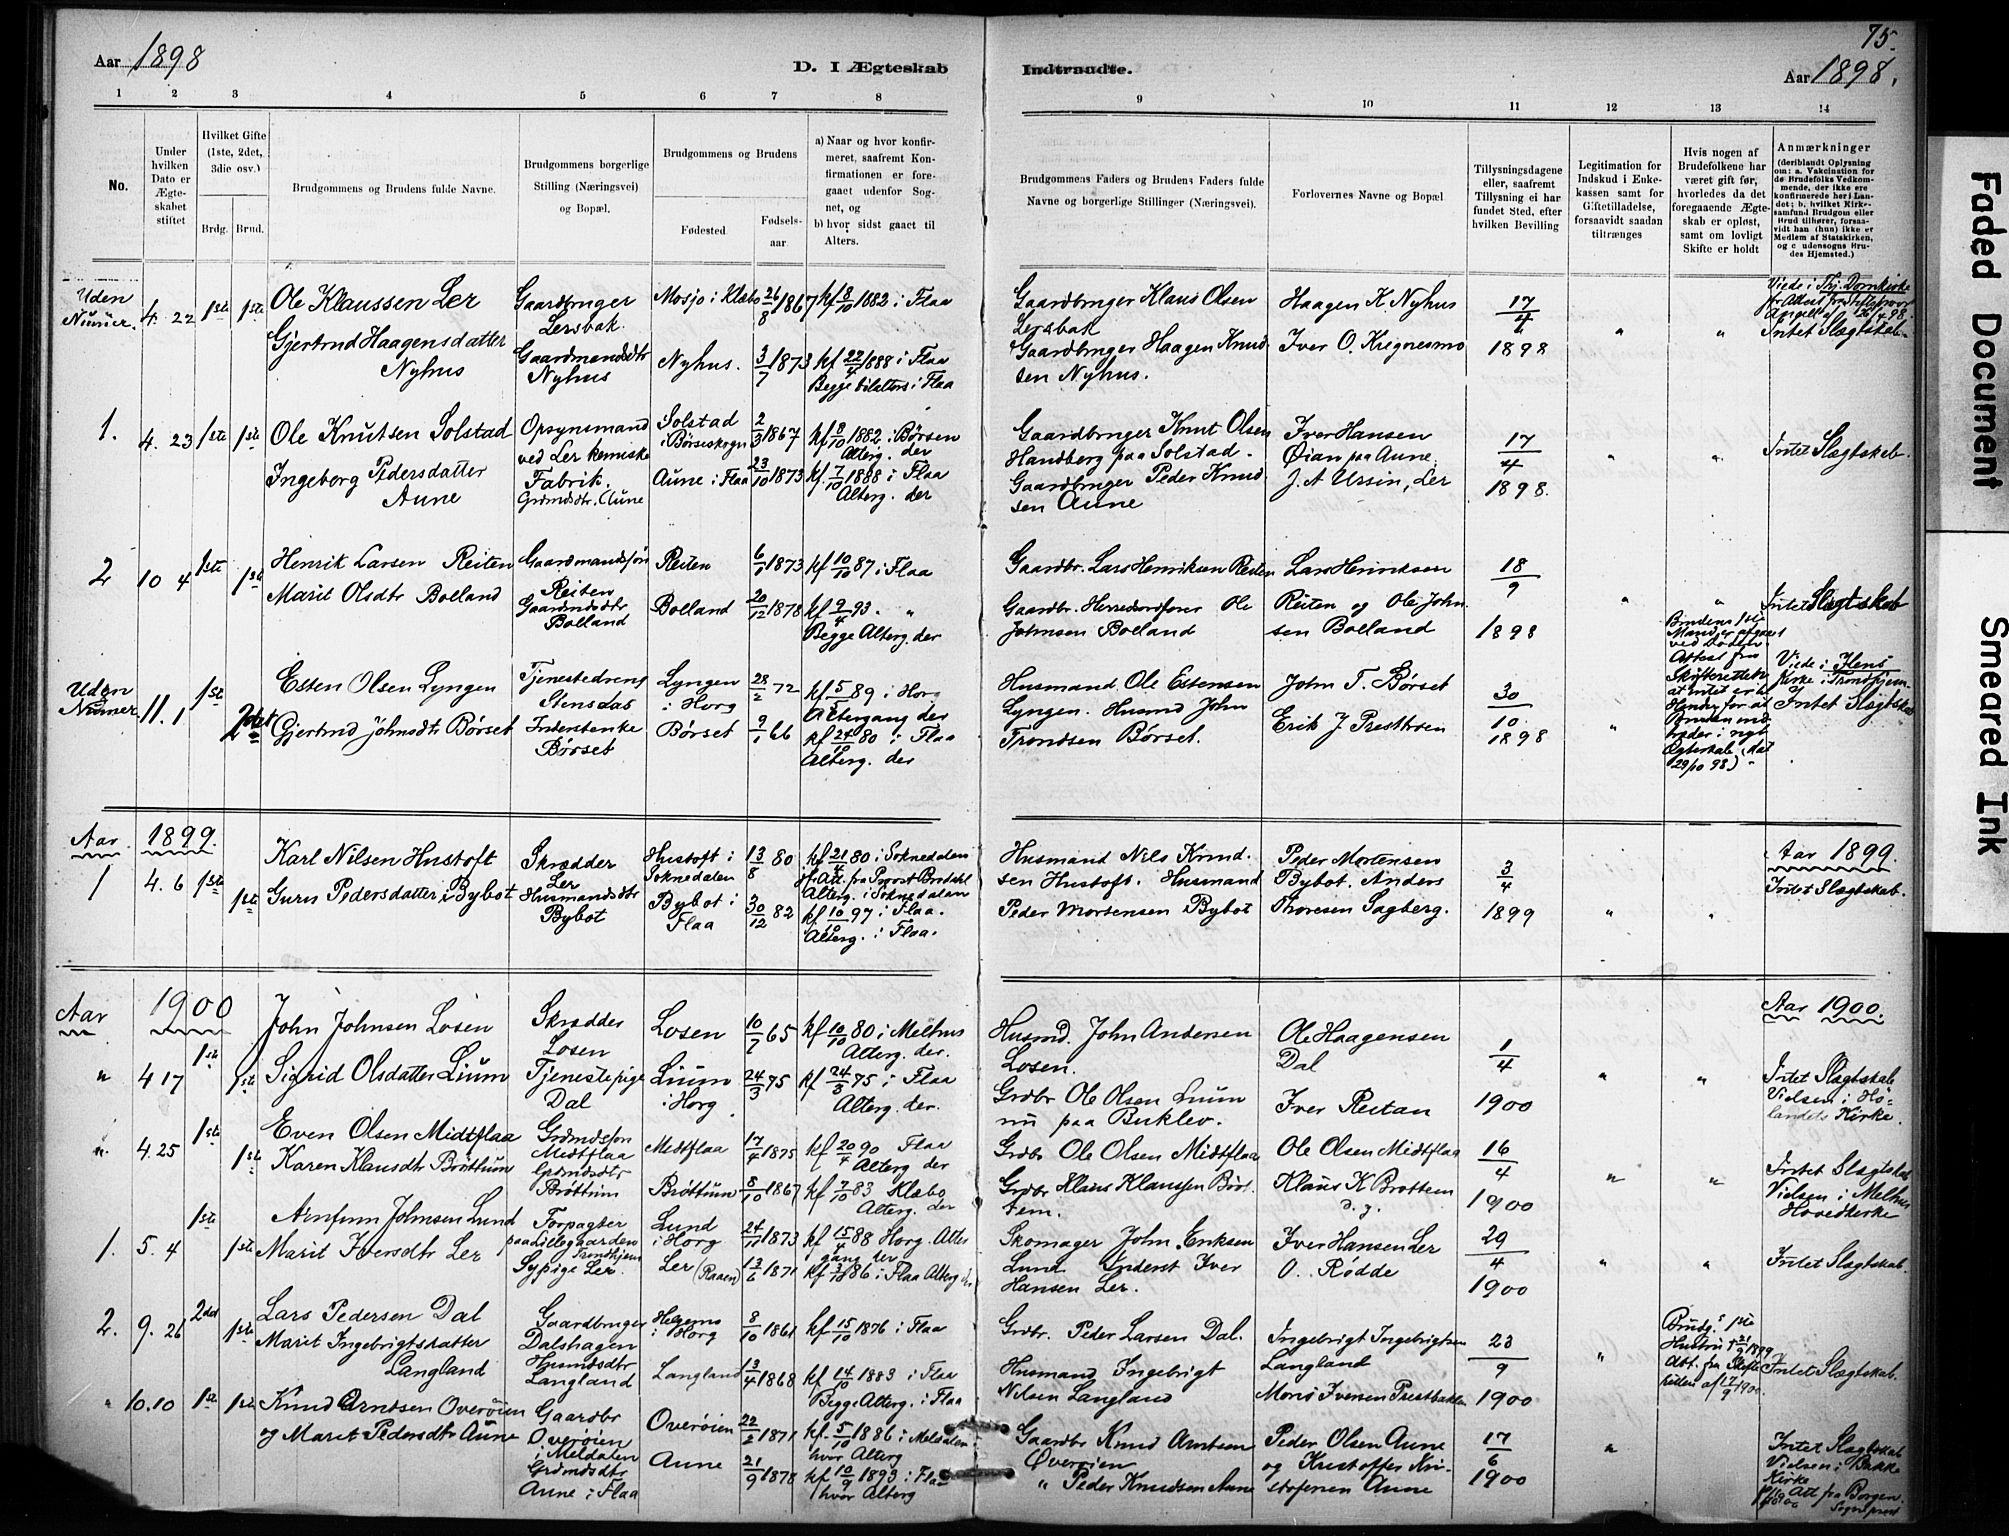 75.
Aar 1898
D. I Ægteskab
Indtraadte.
Aar 1898.
1 2 3 4 5 6 7 8
9 10 11 12 13 14
No.
Under hvilken Dato er Ægteskabet stiftet
Hvilket Gifte (1ste, 2det, 3die osv.)
Brdg. Brud.
Brudgommens og Brudens fulde Navne.
Brudgommens borgerlige Stilling (Næringsvei) og Bopæl.
Brudgommens og Brudens
Fødested
Fødsels-aar
a) Naar og hvor konfirmeret, saafremt Konfirmationen er foregaaet udenfor Sognet, og
b) hvor sidst gaaet til Alters.
Brudgommens Faders og Brudens Faders fulde Navne og borgerlige Stillinger (Næringsvei).
Forlovernes Navne og Bopæl
Tillysningsdagene eller, saafremt Tillysning ei har fundet Sted, efter hvilken Bevilling
Legitimation for Indskud i Enkekassen samt for Giftetilladelse, forsaavidt saadan tiltrænges
Hvis nogen af Brudefolkene har været gift før, hvorledes da det foregaaende Ægteskab er opløst, samt om lovligt Skifte er holdt
Anmærkninger
(deriblandt Oplysning om: a. Vakcination for de Brudefolks Vedkommende, der ikke ere konfirmerede her i Landet; b. hvilket Kirkesamfund Brudgom eller Brud tilhører, forsaavidt han (hun) ikke er Medlem af Statskirken, og c udensogns Brudes Hjemsted.)
Uden Numer. 4. 22 1ste 1ste
Ole Klaussen Ler
Gaardbruger Lersbak.
Mosjo i Klæbo 26/8 1867 kf 8/10 1882 i Flaa
Gjertrud Haagensdatter Nyhus
Gaardmandsdtr Nyhus
Nyhus. 3/7 1873 kf 22/4 1888 i Flaa
Begge tilalters i Flaa
Gaardbruger Klaus Olsen Lersbak
Gaardbruger Haagen Knudsen Nyhus.
Haagen K. Nyhus
Iver O. Kregnesmo
17/4 1898
Viede i Thj. Domkirke
Intet Slægtskab
1. 4. 23 1ste 1ste
Ole Knutsen Solstad
Opsynsmand ved Ler kemiske Fabrik.
Solstad i Børseskogn 2/3 1867 kf 8/10 1882 i Børsen
Alterg. der
Ingeborg Pedersdatter Aune
Grdmdsdtr. Aune
Aune i Flaa 23/10 1873 kf 7/10 1888 i Flaa
Alterg. der
Gaardbruger Knut Olsen Handberg paa Solstad.
Gaardbruger Peder Knudsen Aune
Iver Hansen Øian paa Aune
J. A Ursin, Ler
17/4 1898.
Intet Slægtskab
2 10 4 1ste 1ste
Henrik Larsen Reiten
Gaardmandssøn Reiten
Reiten 6/1 1873 kf 10/10 87 i Flaa
Marit Olsdtr Bolland
Gaardmdsdtr Bolland
Bolland 20/12 1878 kf 9/4 93. "
Begge Alterg. der
Gaardbr. Lars Henriksen Reiten
Gaardbr. Herredsordfører Ole Johnsen Bolland
Lars Henriksen Reiten og Ole Johnsen Bolland
18/9 1898
Intet Slægtskab
Uden Numer 11. 1 1ste 2det
Esten Olsen Lyngen
Tjenestedreng Stensdas
Lyngen i Horg 28/2 72 kf 5/5 89 i Horg
Altergang der
Gjertrud Johnsdtr Børset
Inderstenke Børset
Børset 9/1 66 kf 24/10 80 i Flaa
Alterg. der
Husmand Ole Estensen Lyngen. Husmd John Trondsen Børset.
John T. Børset
Erik J Presthroen
30/10 1898
Brudens 1ste Mand er afgaaet ved Døden. Attest fra Skifteretten at intet er til Hinder for at Bruden indtræder i nyt Ægteskab (dat 29/10 98)
Viede i Ilens Kirke i Trondhjem
Intet Slægtskab
Aar 1899.
Aar 1899.
1 4. 6 1ste 1ste
Karl Nilsen Hustoft
Skrædder Ler
Hustoft i Soknedalen 13/8 80 kf 21/4 80 i Soknedalen
Alterg. i Soknedalen
Guru Pedersdatter Bybot
Husmandsdtr Bybot
Bybot i Flaa 30/12 82 kf 10/10 97 i Flaa.
Alterg. i Flaa.
Husmand Nils Knudsen Hustoft. Husmand
Peder Mortensen Bybot
Peder Mortensen Bybot. Anders Thoresen Sagberg.
3/4 1899
Intet Slægtskab.
Aar 1900
Aar 1900.
" 4 17 1ste 1ste
John Johnsen Losen
Skrædder Losen
Losen 10/7 65 kf 10/10 80 i Melhus
Alterg. der.
Sigrid Olsdatter Lium
Tjenestepige Dal
Lium i Horg 24/3 75 kf 24/3 75 i Flaa
Alterg. der.
Husmd. John Andersen Losen.
Grdbr Ole Olsen Lium nu paa Buklev.
Ole Haagensen Dal
Iver Reitan
1/4 1900
Intet Slægtskab
Vielsen i Hølandets Kirke.
". 4. 25 1ste 1ste
Even Olsen Midtflaa
Grdmdssøn Midtflaa
Midtflaa 17/4 1875 kf 20/4 90 Flaa
Alterg der
Karen Klausdtr Brøttum
Grdmdsdtr Brøttum
Brøttum 8/10 1867 kf 7/10 83 Klæbo
Alterg. der
Grdbr Ole Olsen Midtflaa
Grdbr Klaus Klaussen Brøttem.
Ole Olsen Midtflaa
Klaus K Brøttem
16/4 1900
Intet Slægtskab
Vielsen i Melhus Hovedkirke
1. 5. 4 1ste 1ste
Arnfinn Johnsen Lund
Forpagter paa Lillegaarden Trondhjem
Lund i Horg 24/11 1873 kf 15/4 88 Horg. Altergang der
Marit Iversdtr Ler
Sypige Ler.
Ler (Raaen) 13/6 1871 kf 3/10 86 i Flaa Alterg der
Skomager John Eriksen Lund Inderst Iver Hansen Ler.
Iver Hansen Ler
O. Rødde
29/4 1900
Intet Slægtskab.
2. 9. 26 2det 1ste
Lars Pedersen Dal
Gaardbruger Dalshagen
Hegremo i Horg 8/10 1861 kf 15/10 1876 i Flaa
Marit Ingebrigtsdatter Langland
Husmdsdtr Langland
Langland 13/4 1868 kf 14/10 1883 i Flaa
Begge Alterg. i Flaa
Grdbr. Peder Larsen Dal.
Husmand Ingebrigt Nilsen Langland
Ingebrigt Ingebrigtsen Langland
Mons Iversen Prestbakken
23/9 1900
Brudg.s 1ste Hustru † 21/9 1899 Att. fra Skifteretten af 17/9 1900
Intet Slægtskab.
" 10. 10 1ste 1ste
Knud Arntsen Overøien
Gaardbr Overøien i Meldalen
Overøien 22/2 1871 kf. 5/10 1886 i Meldalen
hvor Alterg
og Marit Pedersdtr Aune
Grdmdsdtr Aune i Flaa
Aune 21/9 1878 kf 10/9 1893 i Flaa
hvor Alterg
Gaardbr Knud Arntsen Øverøien
" Peder Knudsen Aune
Peder Olsen Aune og Kristoffer Kristofersen Aune
17/6 1900
Intet Slægtskab
Vielsen i Bakke Kirke
Att fra Borgen. Sogneprest
Faded Document
Smeared Ink